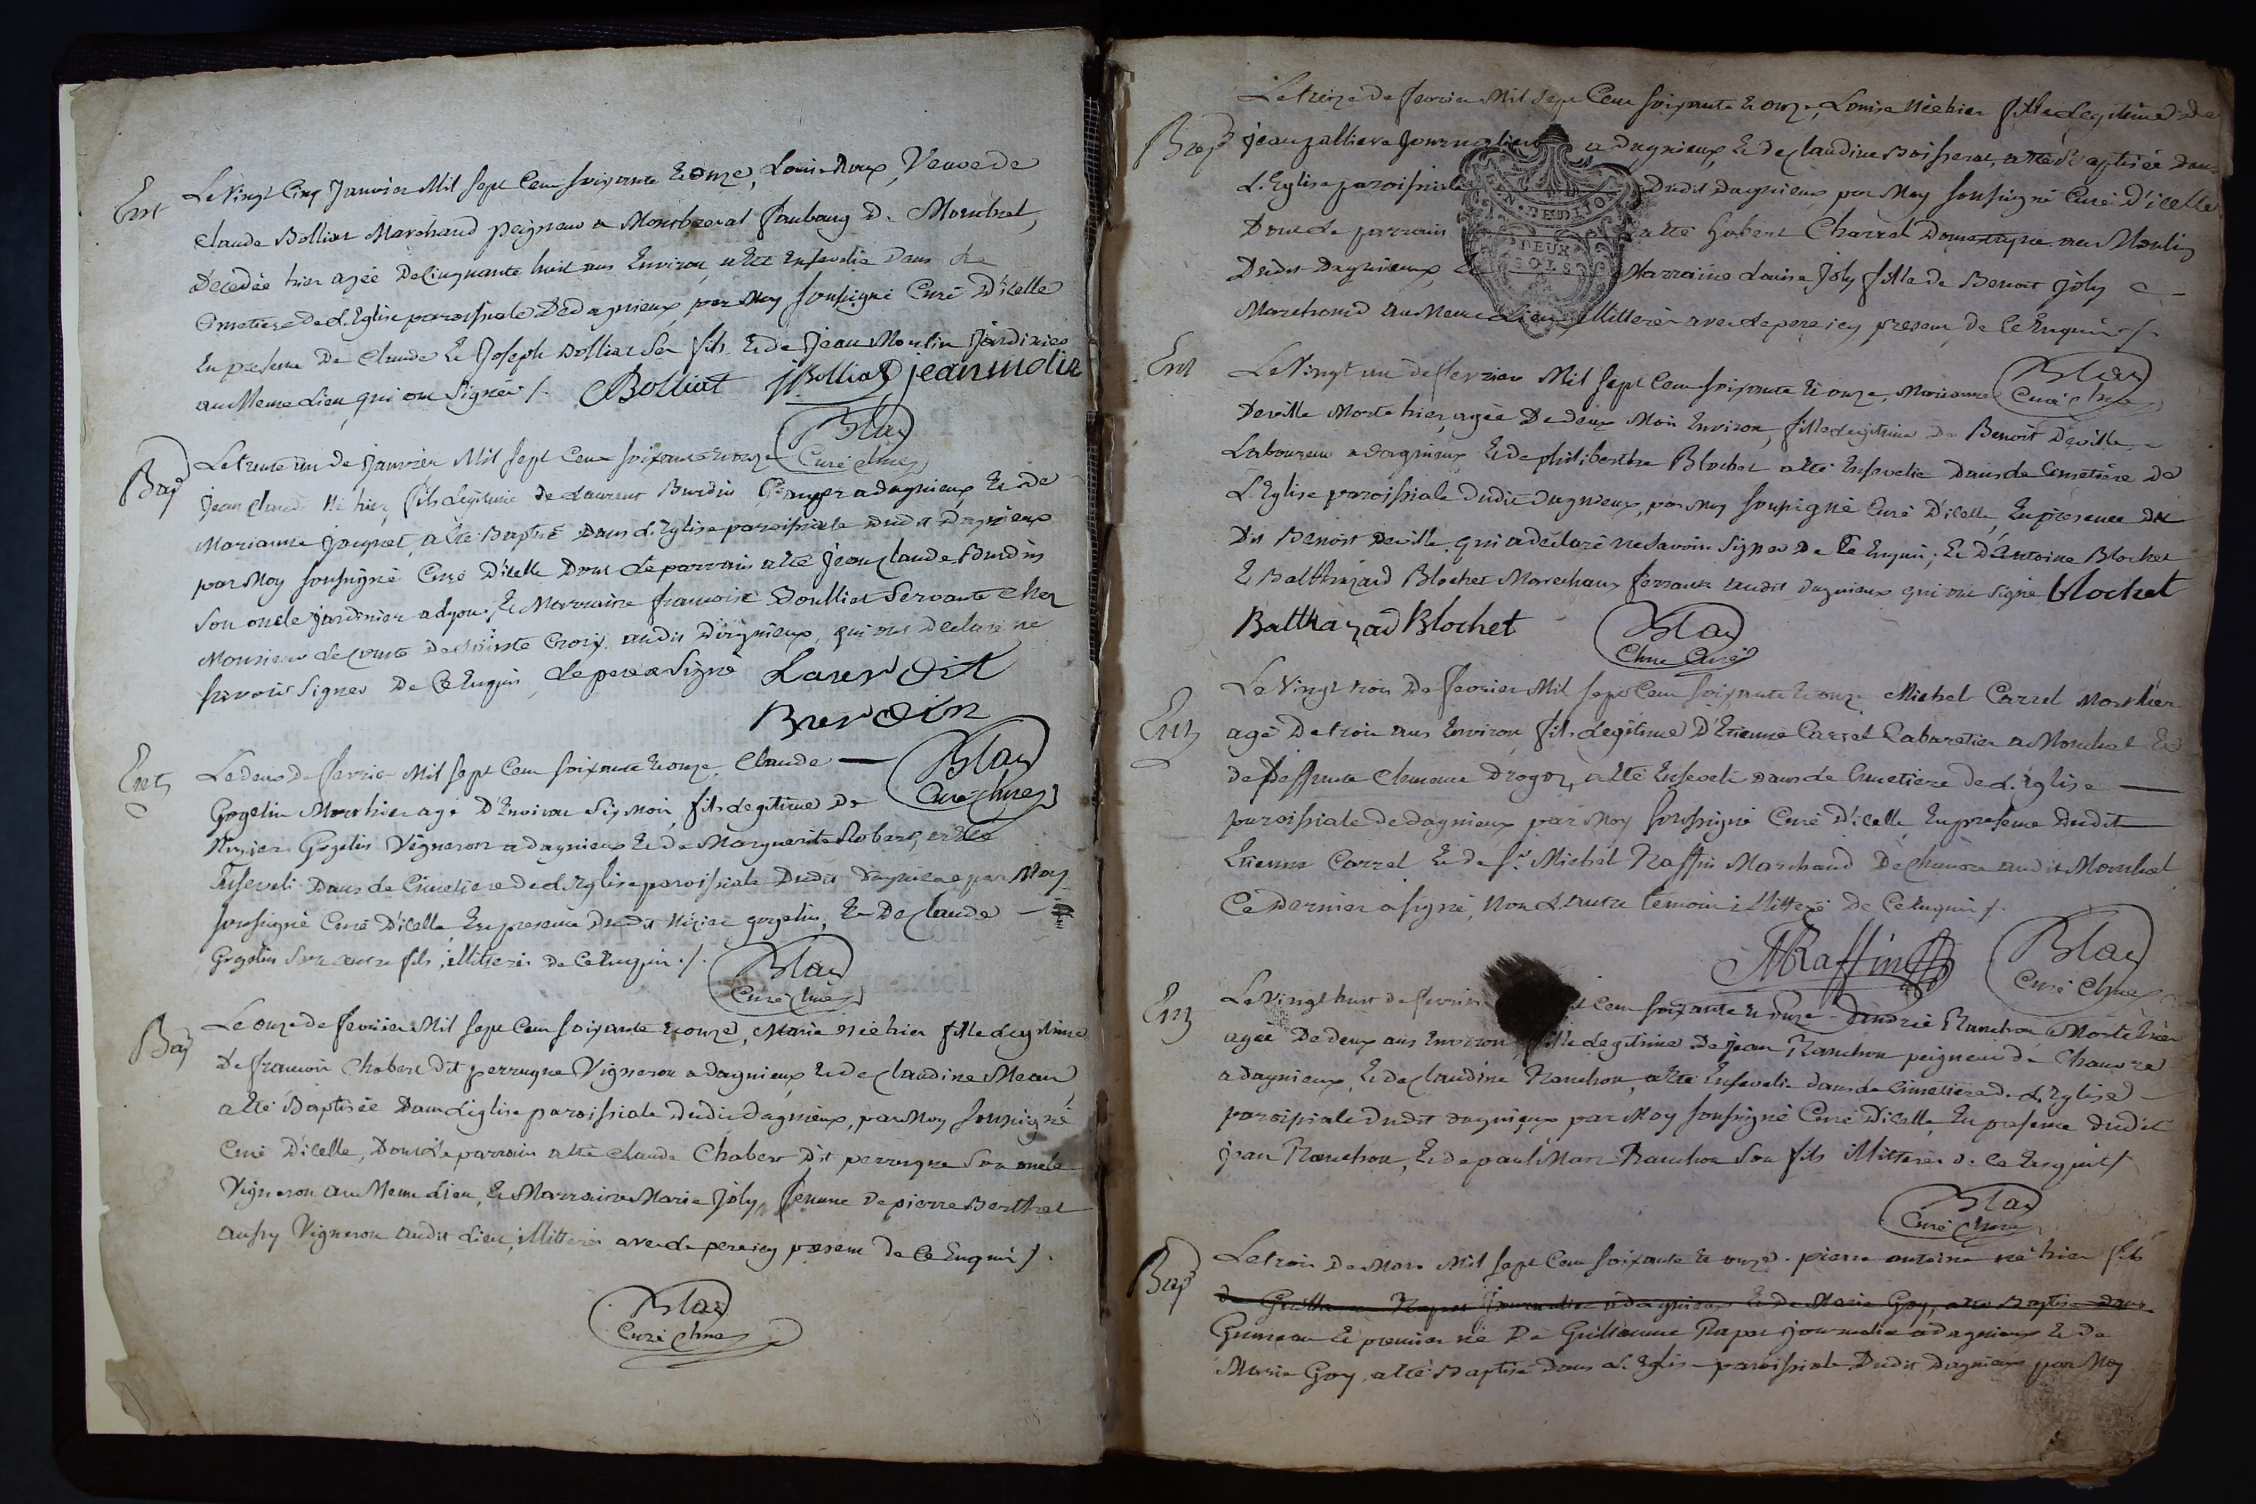 Ent
Le Vingt Cinq Janvier Mil sept Cent soixante et onze, Louise Roux, Veuve de
Claude Bolliat Marchand peigneur a Montbreval faubourg de Montluel,
Decedée hier agée De Cinquante huit ans Environ a été Ensevelie Dans le
Cimetiere de L'Eglise paroissiale De dagnieux par Moy soussigné Curé D'icelle
En presence De Claude et Joseph Bolliat Ses fils et de Jean Moulin Jardinier
au Meme Lieu, qui ont Signés /. CBolliat JBolliat jean molin
Blas
Curé
Bap
Le trente un de Janvier Mil sept Cent soixante et onze
Jean Claude Né hier, fils Legitime de Laurent Burdin a dagnieux, et de
Marianne Jaquet, a été Baptisé Dans L'Eglise paroissiale Dudit Dagnieux
par Moy soussigné Curé D'icelle Dont Le parrain a été Jean Claude Burdin
Son oncle jardinier a Lyon, et Marraine francoise Boulliat Servante chez
Monsieur Le Comte De sainte Croix audit Dagnieux, qui ont Declaré ne
savoir Signer De Ce Enquis, Le pere a Signé Laurent
Burdin
Blas
Curé
Ent
Le deux de fevrier Mil sept Cent soixante et onze, Claude
Gogelin Mort hier agé D'Environ Six Mois, fils Legitime De
Nizier Gogelin Vigneron a dagnieux et de Marguerite Robert, a été
Enseveli Dans Le Cimetiere de L'Eglise paroissiale Dudit Dagnieux par Moy
soussigné Curé D'icelle En presence Dudit Nizier gogelin, et De Claude
Gogelin Son autre fils, illitterés de Ce Enquis /.
Blas
Curé
Bap
Le onze de fevrier Mil sept Cent soixante et onze, Marie Née hier fille Legitime
De francois Chabert dit perruque Vigneron a dagnieux, et de Claudine Mean
a été Baptisée Dans L'église paroissiale dudit dagnieux, par Moy soussigné
Curé D'icelle, Dont Le parrain a été Claude Chabert Dit perruque Son oncle
Vigneron au Meme Lieu, et Marraine Marie Joly, femme De pierre Berthet
aussy Vigneron audit Lieu, illitterés avec Le pere icy present De Ce Enquis /.
Blas
Curé
Bap
Le treize De fevrier Mil Sept Cent soixante et onze, Louise Née hier fille Legitime de
Jean galliere Journalier a dagnieux, et de Claudine Boisserat, a été Baptisée Dans
L'Eglise paroissiale Dudit Dagnieux par Moy soussigné Curé D'icelle
Dont Le parrain a été hubert Charrel Domestique au Moulin
Dudit Dagnieux, et Marraine Louise Joly fille de Benoit Joly
Marchand au Meme Lieu, illitterés avec Le pere icy present de Ce Enquis /.
DEUX
SOLS
Blas
Curé
Ent
Le Vingt un de fevrier Mil sept Cent soixante et onze, Marianne
Deville Morte hier, agée De deux Mois Environ, fille Legitime De Benoit Deville
Laboureur a dagnieux, et de philiberthe Blochet a été Ensevelie Dans Le Cimetière De
L'Eglise paroissiale dudit dagnieux, par Moy soussigné Curé D'icelle, En presence du
Dit Benoit Deville qui a declaré ne Savoir Signer De Ce Enquis, et D'antoine Blochet
et Balthazard Blochet Marechaux ferrants audit dagnieux qui ont signé blochet
Balthazard Blochet
Blas
Curé
Ent
Le Vingt trois De fevrier Mil sept Cent soixante et onze Michel Carrel Mort hier
agé De trois ans Environ, fils Legitime D'Etienne Carrel Cabaretier a Montluel et
de Deffunte Drogoz, a été Enseveli Dans Le Cimetiere de L'Eglise
paroissiale de dagnieux par Moy soussigné Curé D'icelle, En presence dudit
Etienne Carrel et de Sr Michel Raffin Marchand De Chanvre audit Montluel
Ce Dernier a signé, Non L'autre témoin illitteré De Ce Enquis /.
MRaffin
Blas
Curé
Ent
Le Vingt huit de fevrier Cent soixante et onze andrée Ranchon Morte hier
agée De deux ans Environ, fille Legitime De jean Ranchon peigneur de Chanvre
a dagnieux, et de Claudine Ranchon, a été Ensevelie dans Le Cimetiere de L'Eglise
paroissiale dudit dagnieux par Moy soussigné Curé D'icelle, En presence dudit
jean Ranchon, et de paul Marc Ranchon Son fils illitterés De Ce Enquis /.
Blas
Curé
Bap
Le trois De Mars Mil sept Cent soixante et onze, pierre antoine né hier fils
de Guillaume Rapos Journalier a dagnieux et De Marie Goy, a été Baptisé dans
Gumeau et premier né De Guillaume Rapos journalier a dagnieux et de
Marie Goy, a été Baptisé Dans L'Eglise paroissiale Dudit Dagnieux par Moy